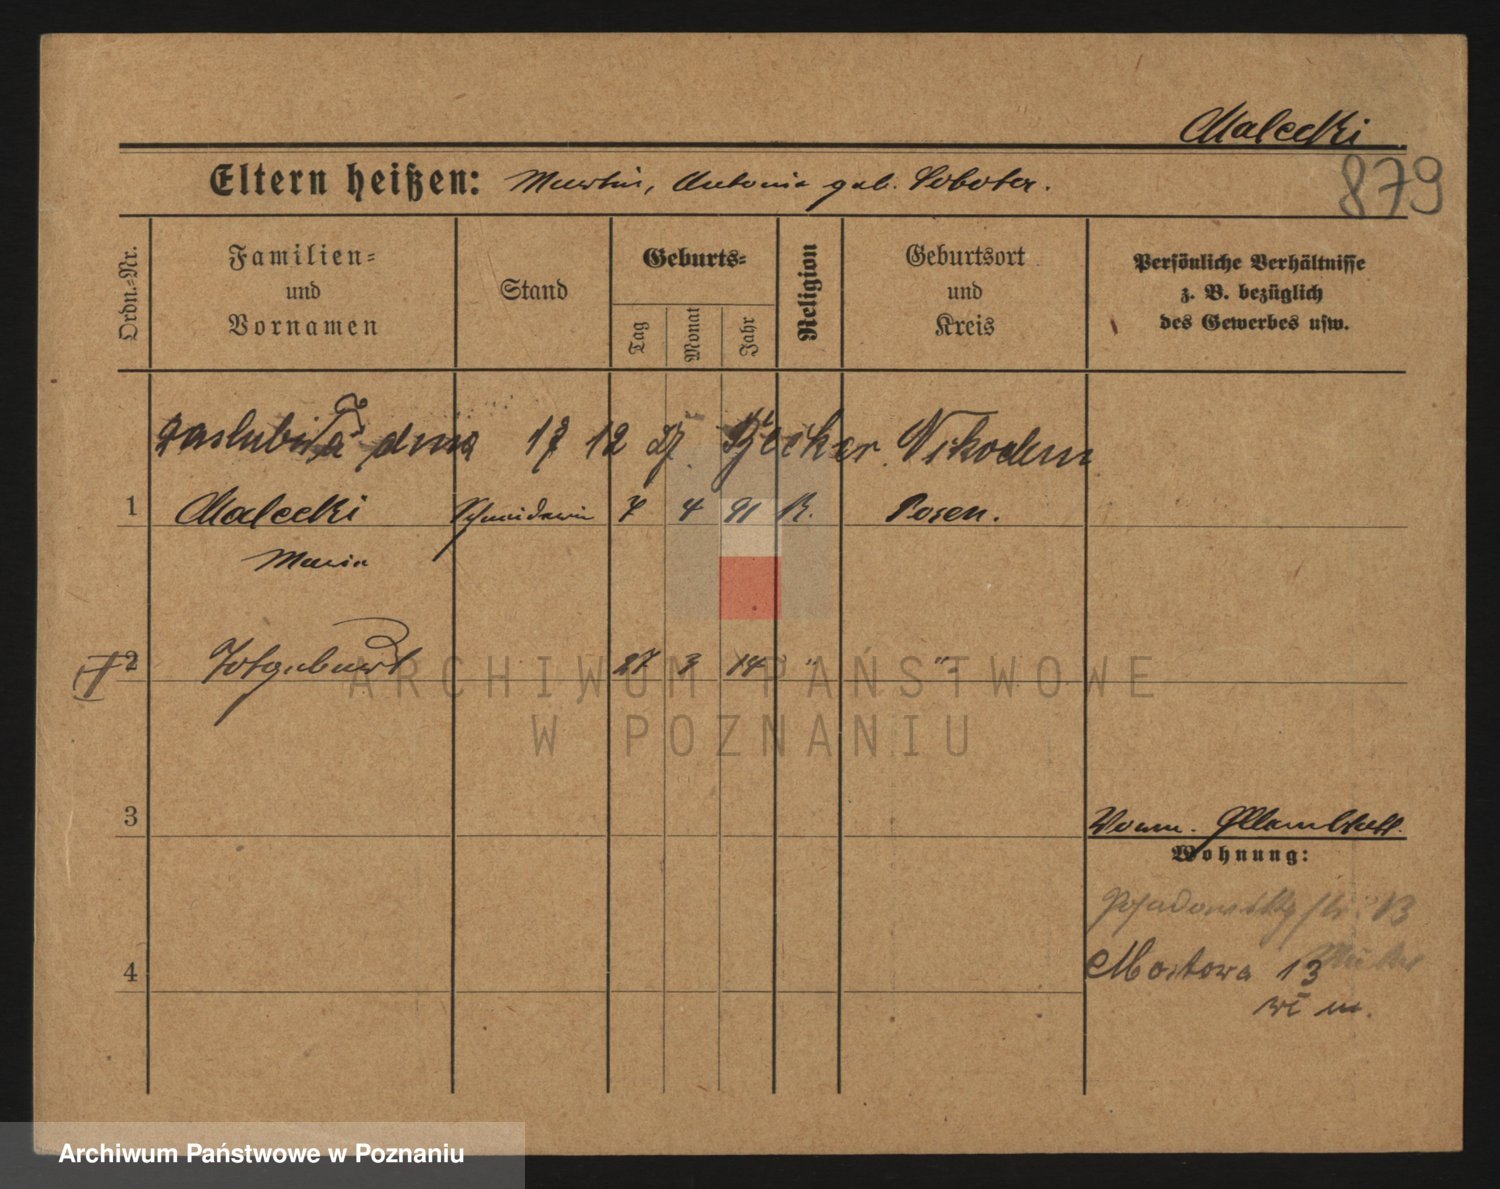 Malecki
879
Eltern heißen: Martin, Antonia geb. Sobota.
Ordn.-Nr.
Familien-
und
Vornamen
Stand
Geburts-
Tag
Monat
Jahr
Religion
Geburtsort
und
Kreis
Persönliche Verhältnisse
z. B. bezüglich
des Gewerbes usw.
zaślubiła dnia 17 12 Becker Nikodem
1 Malecki Schneiderin 7 4 91 K. Posen.
Maria
2 Totgeburt 27 3 14 " "
3
Wohnung:
13
4
Mostowa 13
m.
ARCHIWUM PAŃSTWOWE
W POZNANIU
Archiwum Państwowe w Poznaniu